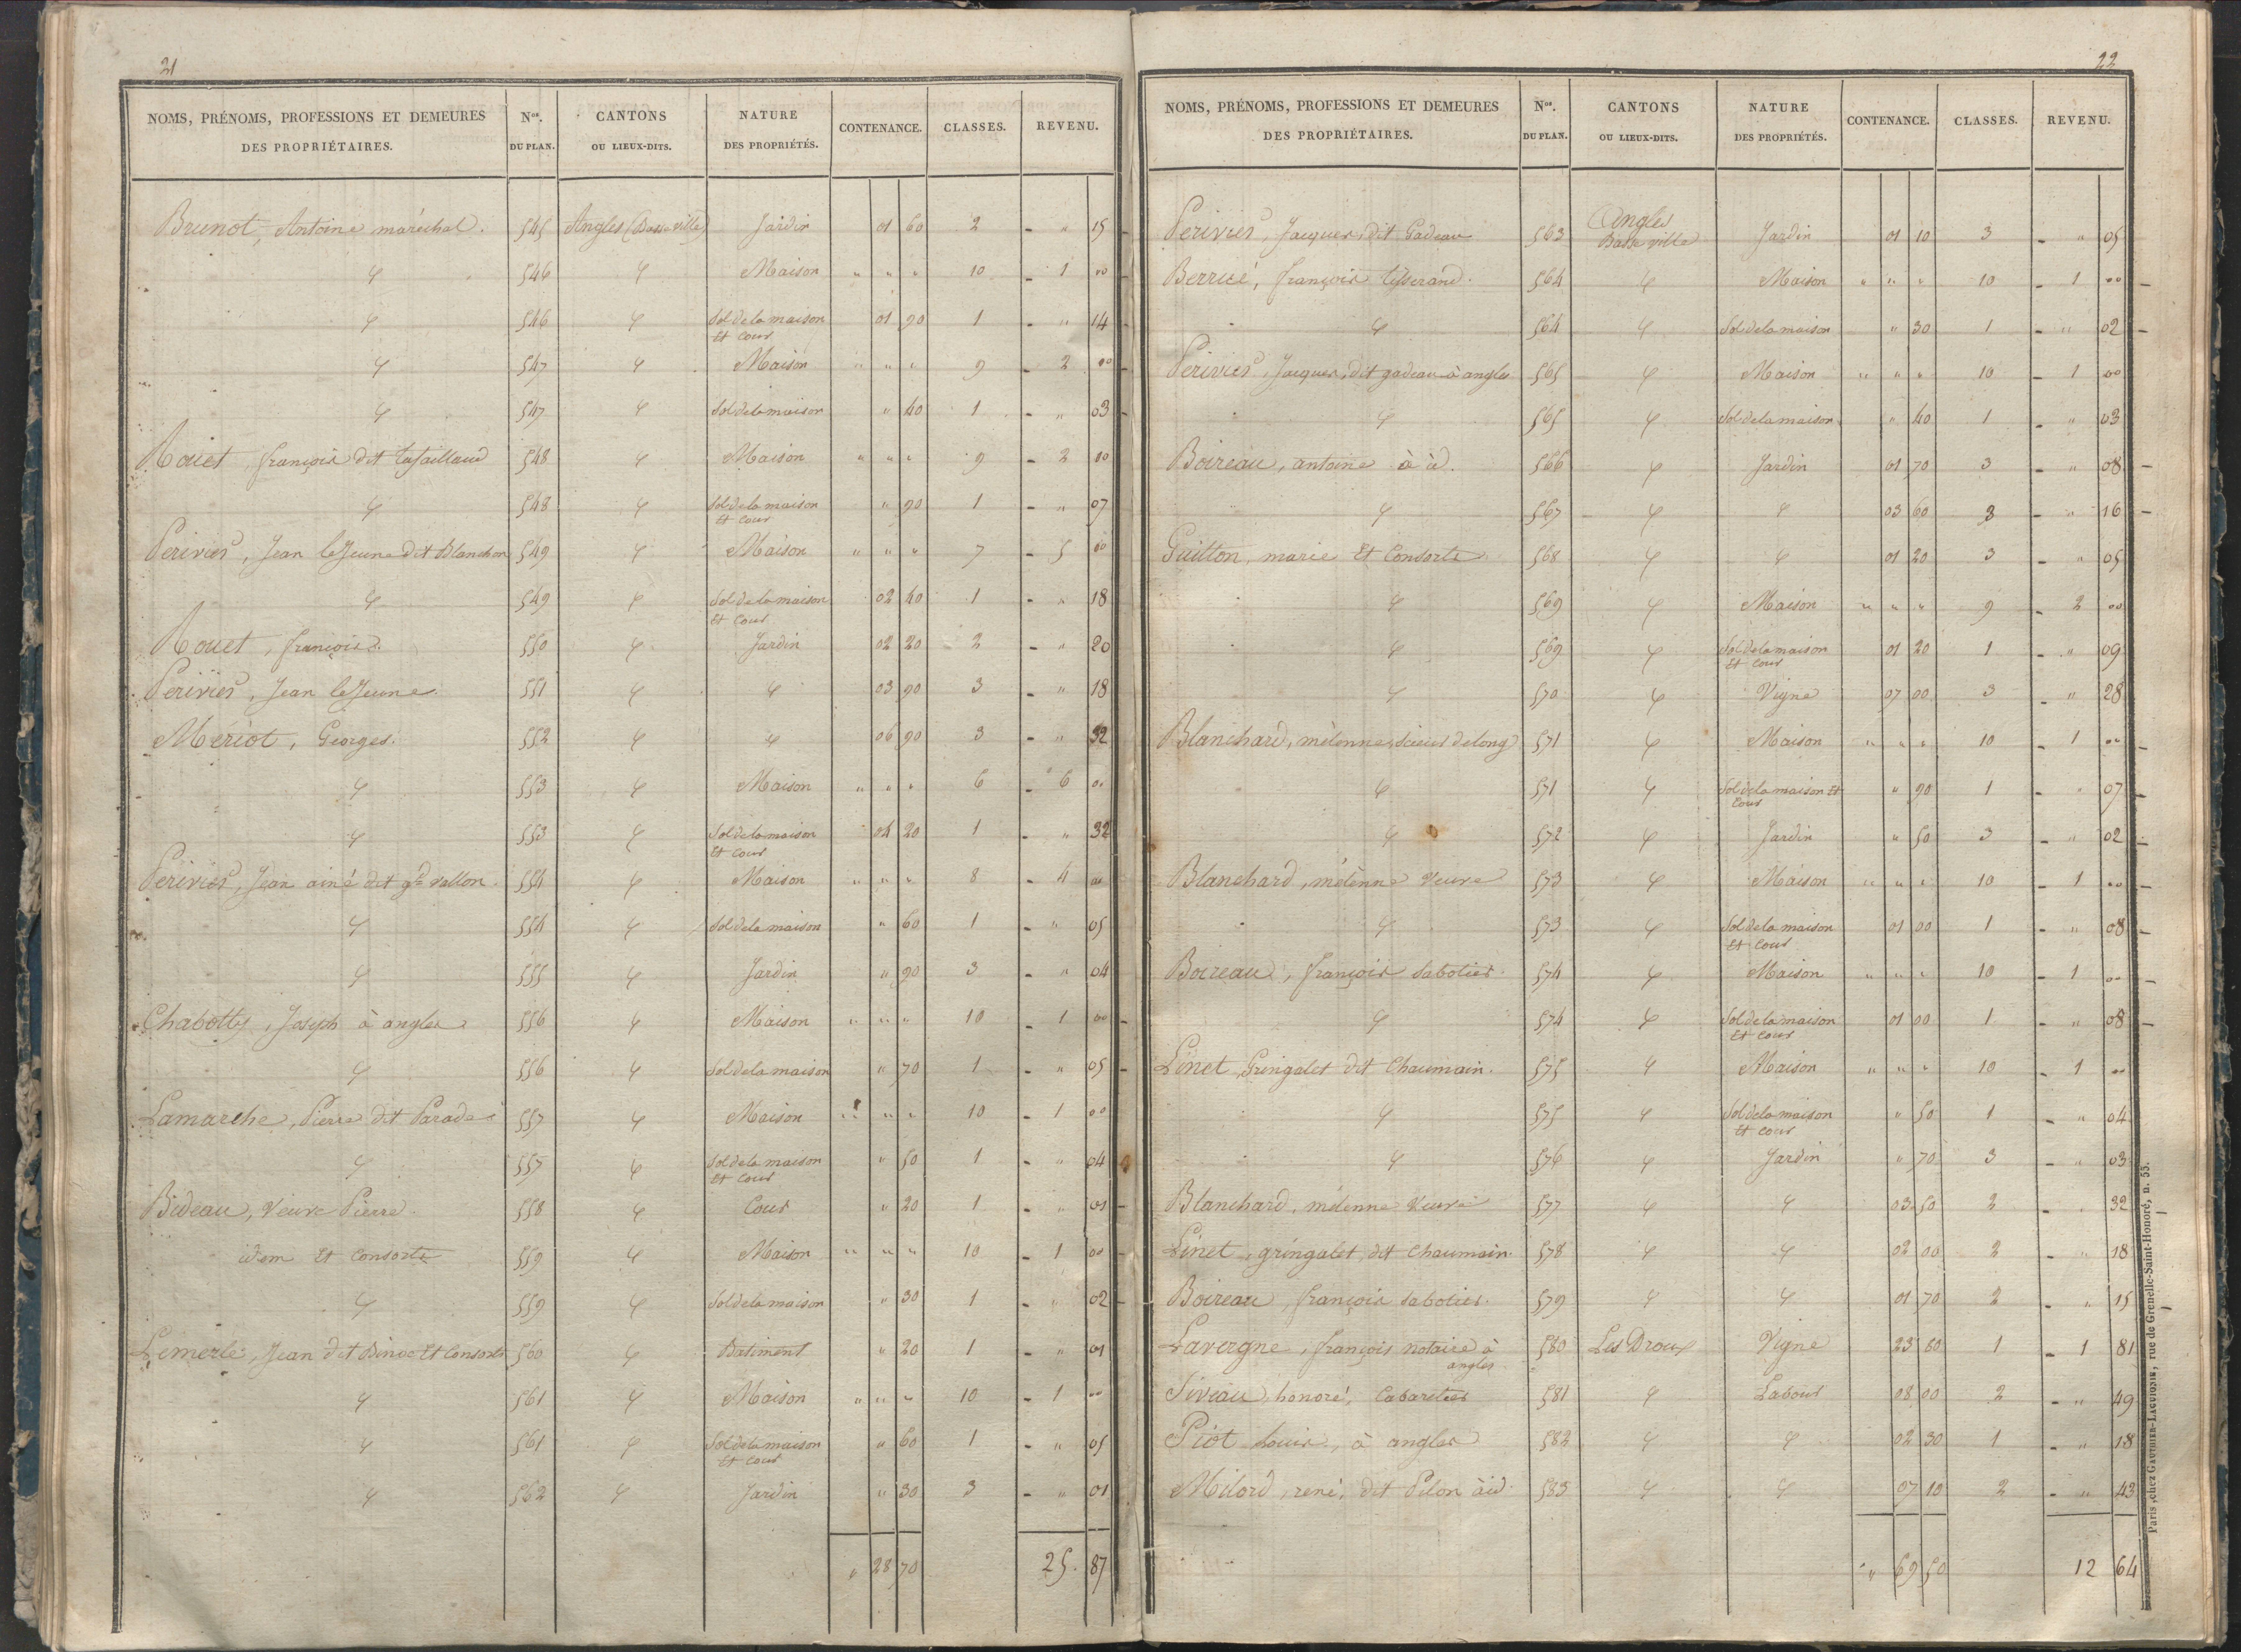 21
NOMS, PRÉNOMS, PROFESSIONS ET DEMEURES DES PROPRIÉTAIRES. | Nos. DU PLAN. | CANTONS OU LIEUX-DITS. | NATURE DES PROPRIÉTÉS. | CONTENANCE. | CLASSES. | REVENU.
Brunot, Antoine maréchal. 545 Angles (Basse ville) Jardin 01 60 2 - " 15
" 546 " Maison " " " 10 - 1 00
" 546 " Sol de la maison Et Cour 01 90 1 - " 14
" 547 " Maison " " " 9 - 2 00
" 547 " Sol de la maison " 40 1 - " 03
Rouet, françois dit 548 " Maison " " " 9 - 2 00
" 548 " Sol de la maison Et Cour " 90 1 - " 07
Perivier, Jean le Jeune dit Blanchon 549 " Maison " " " 7 - 5 00
" 549 " Sol de la maison Et Cour 02 40 1 - " 18
Rouet, françois. 550 " Jardin 02 20 2 - " 20
Perivier, Jean le Jeune. 551 " " 03 90 3 - " 18
Mériot, Georges. 552 " " 06 90 3 - " 32
" 553 " Maison " " " 6 - 6 00
" 553 " Sol de la maison Et Cour 04 20 1 - " 32
Perivier, Jean ainé dit gd vallon. 554 " Maison " " " 8 - 4 00
" 554 " Sol de la maison " 60 1 - " 05
" 555 " Jardin " 90 3 - " 04
Chabotty, Joseph à angles 556 " Maison " " " 10 - 1 00
" 556 " Sol de la maison " 70 1 - " 05
Lamarche, Pierre dit Parade 557 " Maison " " " 10 - 1 00
" 557 " Sol de la maison Et Cour " 50 1 - " 04
Bideau, Veuve Pierre. 558 " Cour " 20 1 - " 01
idem Et Consorts 559 " Maison " " " 10 - 1 00
" 559 " Sol de la maison " 30 1 - " 02
Lemerle, Jean dit Et Consorts 560 " Batiment " 20 1 - " 01
" 561 " Maison " " " 10 - 1 00
" 561 " Sol de la maison Et Cour " 60 1 - " 05
" 562 " Jardin " 30 3 - " 01
" 28 70 25. 87
22
NOMS, PRÉNOMS, PROFESSIONS ET DEMEURES DES PROPRIÉTAIRES. | Nos. DU PLAN. | CANTONS OU LIEUX-DITS. | NATURE DES PROPRIÉTÉS. | CONTENANCE. | CLASSES. | REVENU.
Perivier, Jacques, dit Gadeau 563 Angles Basse ville Jardin 01 10 3 - " 05
Berricé, françois tisserand. 564 " Maison " " " 10 - 1 00
" 564 " Sol de la maison " 30 1 - " 02
Perivier, Jacques, dit gadeau à angles 565 " Maison " " " 10 - 1 00
" 565 " Sol de la maison " 40 1 - " 03
Boireau, antoine à id. 566 " Jardin 01 70 3 - " 08
" 567 " " 03 60 3 - " 16
Guitton, marie Et Consorts 568 " " 01 20 3 - " 05
" 569 " Maison " " " 9 - 2 00
" 569 " Sol de la maison Et Cour 01 20 1 - " 09
" 570 " Vigne 07 00 3 - " 28
Blanchard, mélenne, scieur de long 571 " Maison " " " 10 - 1 00
" 571 " Sol de la maison Et Cour " 90 1 - " 07
" 572 " Jardin " 50 3 - " 02
Blanchard, mélènne Veuve 573 " Maison " " " 10 - 1 00
" 573 " Sol de la maison Et Cour 01 00 1 - " 08
Boireau, françois Sabotier. 574 " Maison " " " 10 - 1 00
" 574 " Sol de la maison Et Cour 01 00 1 - " 08
Linet, Gringalet dit Chaumain. 575 " Maison " " " 10 - 1 00
" 575 " Sol de la maison Et Cour " 50 1 - " 04
" 576 " Jardin " 70 3 - " 03
Blanchard, mélenne Veuve 577 " " 03 50 2 - " 32
Linet, gringalet, dit Chaumain. 578 " " 02 00 2 - " 18
Boireau, françois Sabotier. 579 " " 01 70 2 - " 15
Lavergne, françois notaire à angles. 580 Les Droux Vigne 23 80 1 - 1 81
Siveau, honoré, Cabaretier 581 " Labour 08 00 2 - " 49
Piot Louis, à angles 582 " " 02 30 1 - " 18
Milord, rené, dit Pilon à id. 583 " " 07 10 2 - " 43
" 69 50 12 64
Paris, chez GAUTHIER-LAGUIONIE, rue de Grenelle-Saint-Honoré, n. 55.